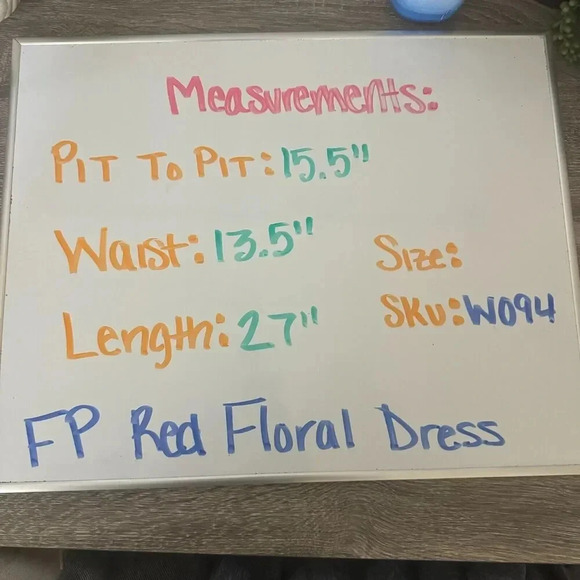 Measurements:
Pit To Pit: 15.5"
Waist: 13.5"
Size:
Length: 27"
SKU: W094
FP Red Floral Dress